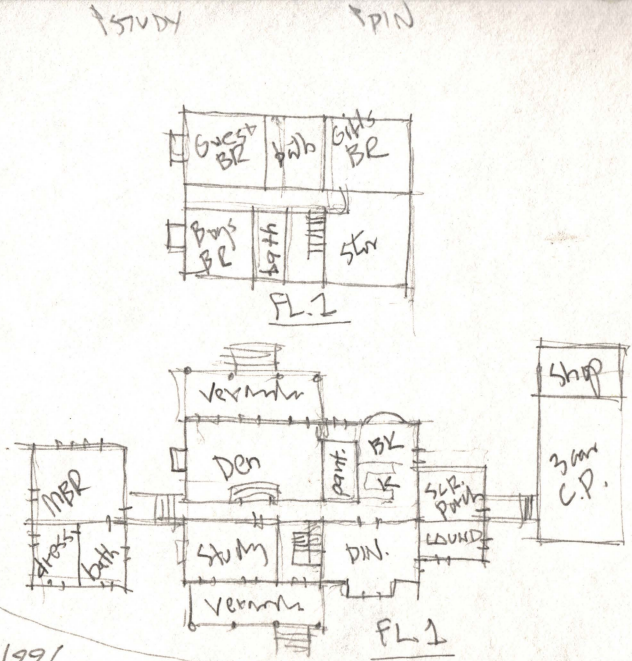 STUDY
DIN
Guest
BR
bath
Girls
BR
Boys
BR
bath
Stor
FL.1
Veranda
Shop
Den
pant.
BK
K
3 car
C.P.
MBR
Scr.
Porch
dress.
bath
Study
DIN.
LAUND
Veranda
FL.1
1991